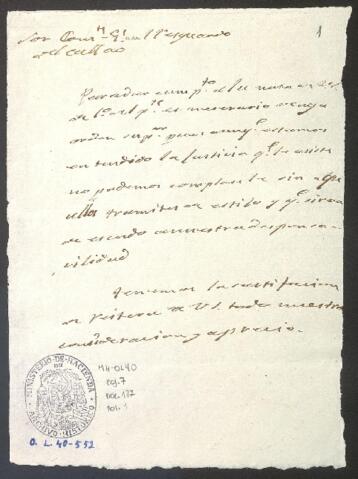 Sor Com.te G.l en el Resguardo
del Callao
1
Para dar cump.to a la nota de
de 6 del p.te es necesario venga
orden sup.or pues aunq.e estamos
entendido la justicia q.e le asiste
no podemos complacerle sin aque
llos tramites de estilo y q.e sirvan
de escudo a nuestra responsa
vilidad
Tenemos la satisfaccion
de reiterar a VS. toda nuestra
consideracion y aprecio.
MINISTERIO DE HACIENDA
ARCHIVO HISTORICO
MH-OL40
Doc. 132
Fol. 1
O. L. 40-532